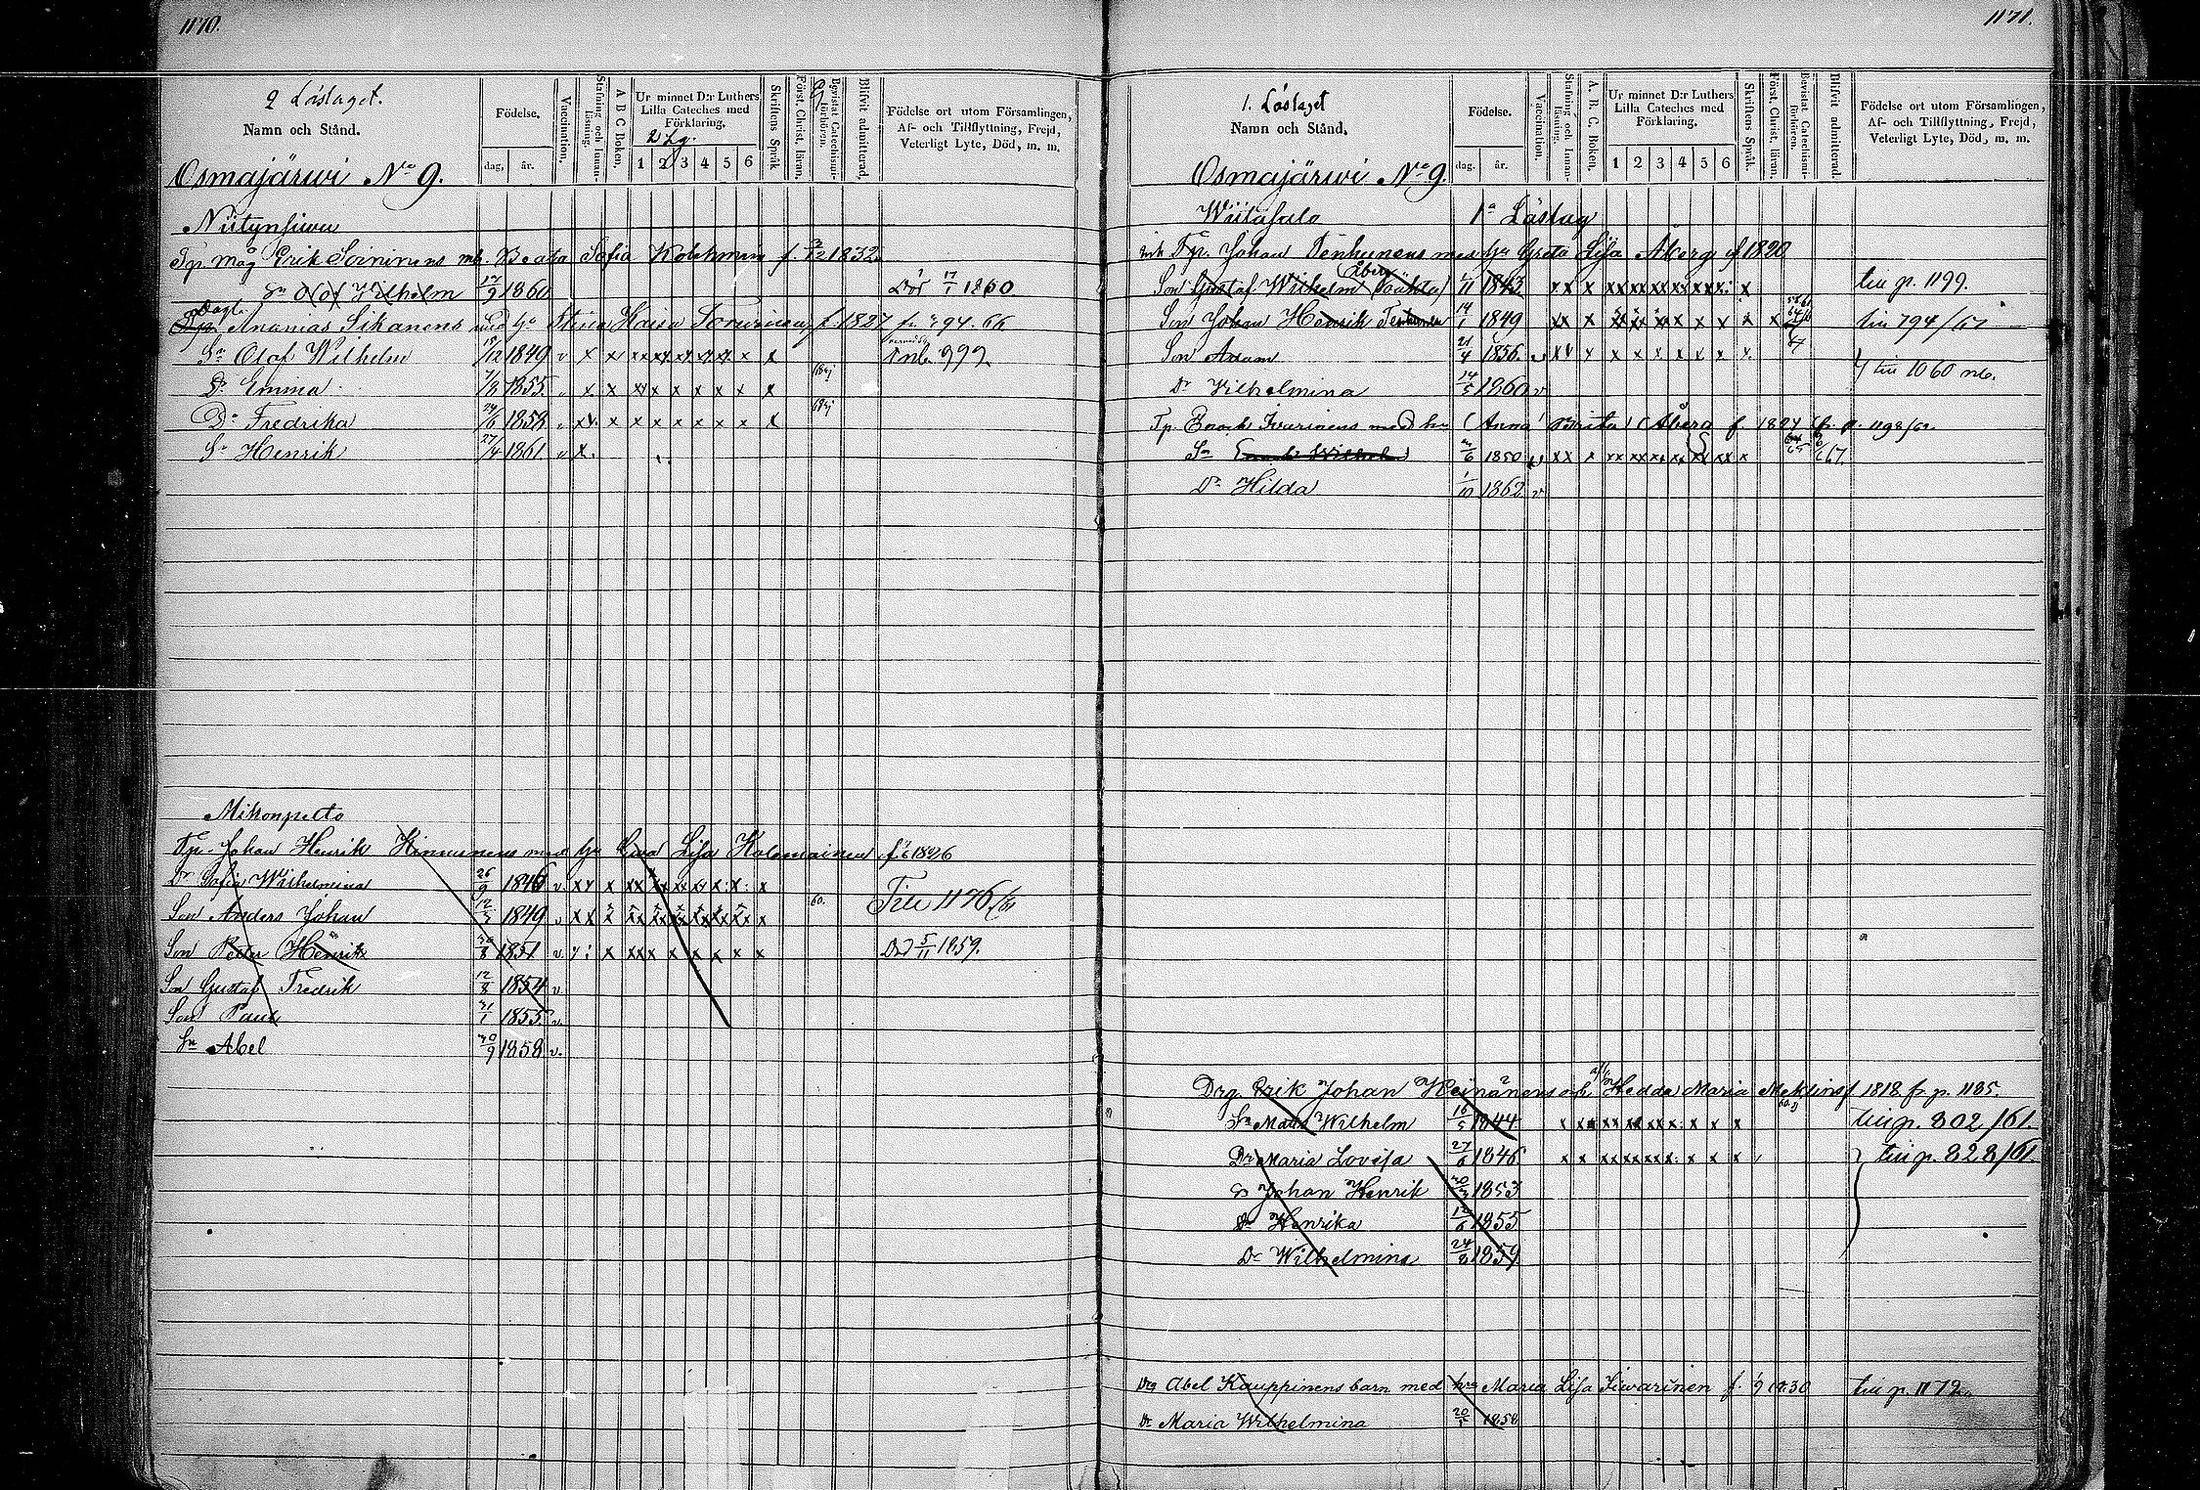 1170.
2 Läslaget.
Namn och Stånd.
Födelse.
dag, år.
Vaccination.
Stafning och Innan-läsning.
A B C Boken.
Ur minnet D:r Luthers Lilla Cateches med Förklaring.
2 Lg.
1 2 3 4 5 6
Skriftens Språk
Först. Christ. läran.
Bevistat Catechismi-förhören.
Blifvit admitterad.
Födelse ort utom Församlingen, Af- och Tillflyttning, Frejd, Veterligt Lyte, Död, m. m.
Osmajärwi No 9.
Niitynsiwu
Tp. måg Erik Soininens m. h. Beata Sofia Kolehmain f. 1832
Sn Olof Wilhelm 17/9 1860 Död 17/1 1860.
Ananias Sikanens med hu Stina Kaisa f. 1827 fr. 794. 66
Sn Olof Wilhelm 1849 v nb. 999
Dr Emma 1855
Dr Fredrika 1858
Sn Henrik 27/4 1861 v x
Mikonpelto
Tp. Johan Henrik Hinnunens med hu Ewa Lisa Kolomainen f. 1826
Dr Sofia Wilhelmina 26/9 1846 v
Son Anders Johan 12/5 1849 v 60. Till 1196/61
Son Petter Henrik 30/8 1851 v Död 5/11 1859.
Son Gustaf Fredrik 12/8 1854 v
Son Paul 31/1 1855 v
Sn Abel 30/9 1858 v.
1171.
1. Läslaget
Namn och Stånd.
Födelse.
dag. år.
Vaccination.
Stafning och Innan-läsning.
A. B. C. Boken.
Ur minnet D:r Luthers Lilla Cateches med Förklaring.
1 2 3 4 5 6
Skriftens Språk.
Först. Christ. läran.
Bevistat Catechismi-förhören.
Blifvit admitterad.
Födelse ort utom Församlingen, Af- och Tillflyttning, Frejd, Veterligt Lyte, Död, m. m.
Osmajärwi No 9.
Wiitasalo 1a Läslag
Tp. Johan Tenhunens med hu Greta Lisa Åberg f 1820
Åberg
Son Gustaf Wilhelm 1843 till p. 1199.
Son Johan Henrik Tenhunen 14/1 1849 till 794/67
Son Adam 21/4 1856 v till 1060 nb.
Dr Wilhelmina 14/5 1860 v
Tp. Enok Iwarinens med hu Anna Brita Åberg f 1824 fr. p. 1198/62
Sn Enok Wilhelm 1850 v 67.
Dr Hilda 1/10 1862 v
Drg. Erik Johan Heinänens och Hedda Maria Meklin f 1818 fr p. 1185.
Sn Mats Wilhelm 16/5 1844 till p. 802/61.
Dr Maria Lovisa 27/6 1846 till p. 828/61.
S Johan Henrik 1853
Dr Henrika 12/6 1855
Dr Wilhelmina 24/8 1859
Drg Abel Kauppinens barn med hru Maria Lisa Iiwarinen f. 1830 till p. 1172
Dr Maria Wilhelmina 1858